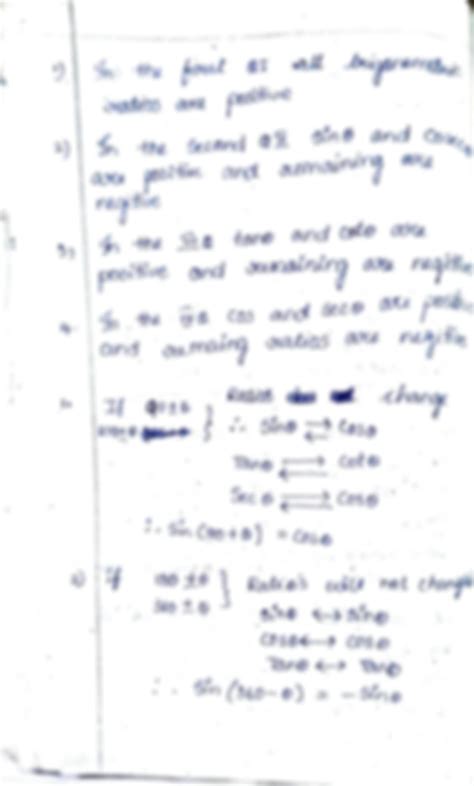 1) In the first Q1 all trigonometric
ratios are positive
2) In the second Q2 sinθ and cosec
are positive and remaining are
negitive
3) In the Q tanθ and cotθ are
positive and remaining are negitive
4. In the Q cos and secθ are positi
and remaing ratios are negitive
If 90±θ } Ratios change
∴ Sinθ ⇄ Cosθ
Tanθ ⇄ Cotθ
Secθ ⇄ Cosθ
∴ Sin(90+θ) = Cosθ
If 180±θ } Ratio's not change
360±θ Sinθ ↔ Sinθ
Cosθ ↔ Cosθ
Tanθ ↔ Tanθ
∴ Sin(360-θ) = -Sinθ